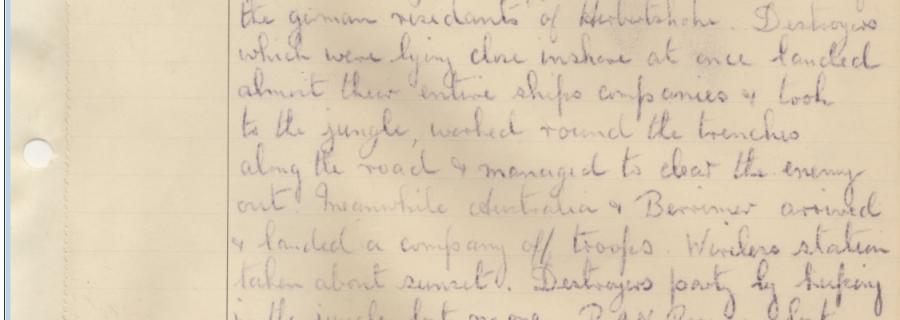 the german residants of Herbertshohe. Destroyers
which were lying close inshore at once landed
almost their entire ships companies & took
to the jungle, worked round the trenches
along the road & managed to clear the enemy
out. Meanwhile Australia & Berrimer arrived
& landed a company off troops. Wireless station
taken about sunset. Destroyers party by keeping
in the jungle lost